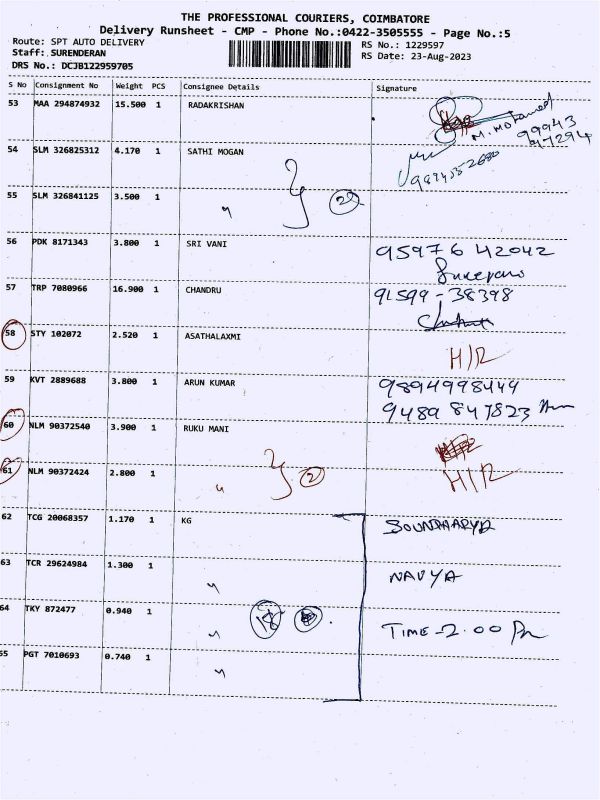 THE PROFESSIONAL COURIERS, COIMBATORE
Delivery Runsheet - CMP - Phone No.:0422-3505555 - Page No.:5
Route: SPT AUTO DELIVERY
RS No.: 1229597
Staff: SURENDERAN
RS Date: 23-Aug-2023
DRS No.: DCJB122959705
S No Consignment No Weight PCS Consignee Details Signature
53 MAA 294874932 15.500 1 RADAKRISHAN
M. Mohamed
99943
47294
54 SLM 326825312 4.170 1 SATHI MOGAN
55 SLM 326841125 3.500 1 "
56 PDK 8171343 3.800 1 SRI VANI 95976 42042
57 TRP 7080966 16.900 1 CHANDRU 91599-38398
58 STY 102072 2.520 1 ASATHALAXMI H/R
59 KVT 2889688 3.800 1 ARUN KUMAR 9894998444
9489 847823
60 NLM 90372540 3.900 1 RUKU MANI
61 NLM 90372424 2.800 1 " 2 H/R
62 TCG 20068357 1.170 1 KG SOUNDHARYA
63 TCR 29624984 1.300 1 " NAVYA
64 TKY 872477 0.940 1 " 18 TIME-2.00 Pm
65 PGT 7010693 0.740 1 "